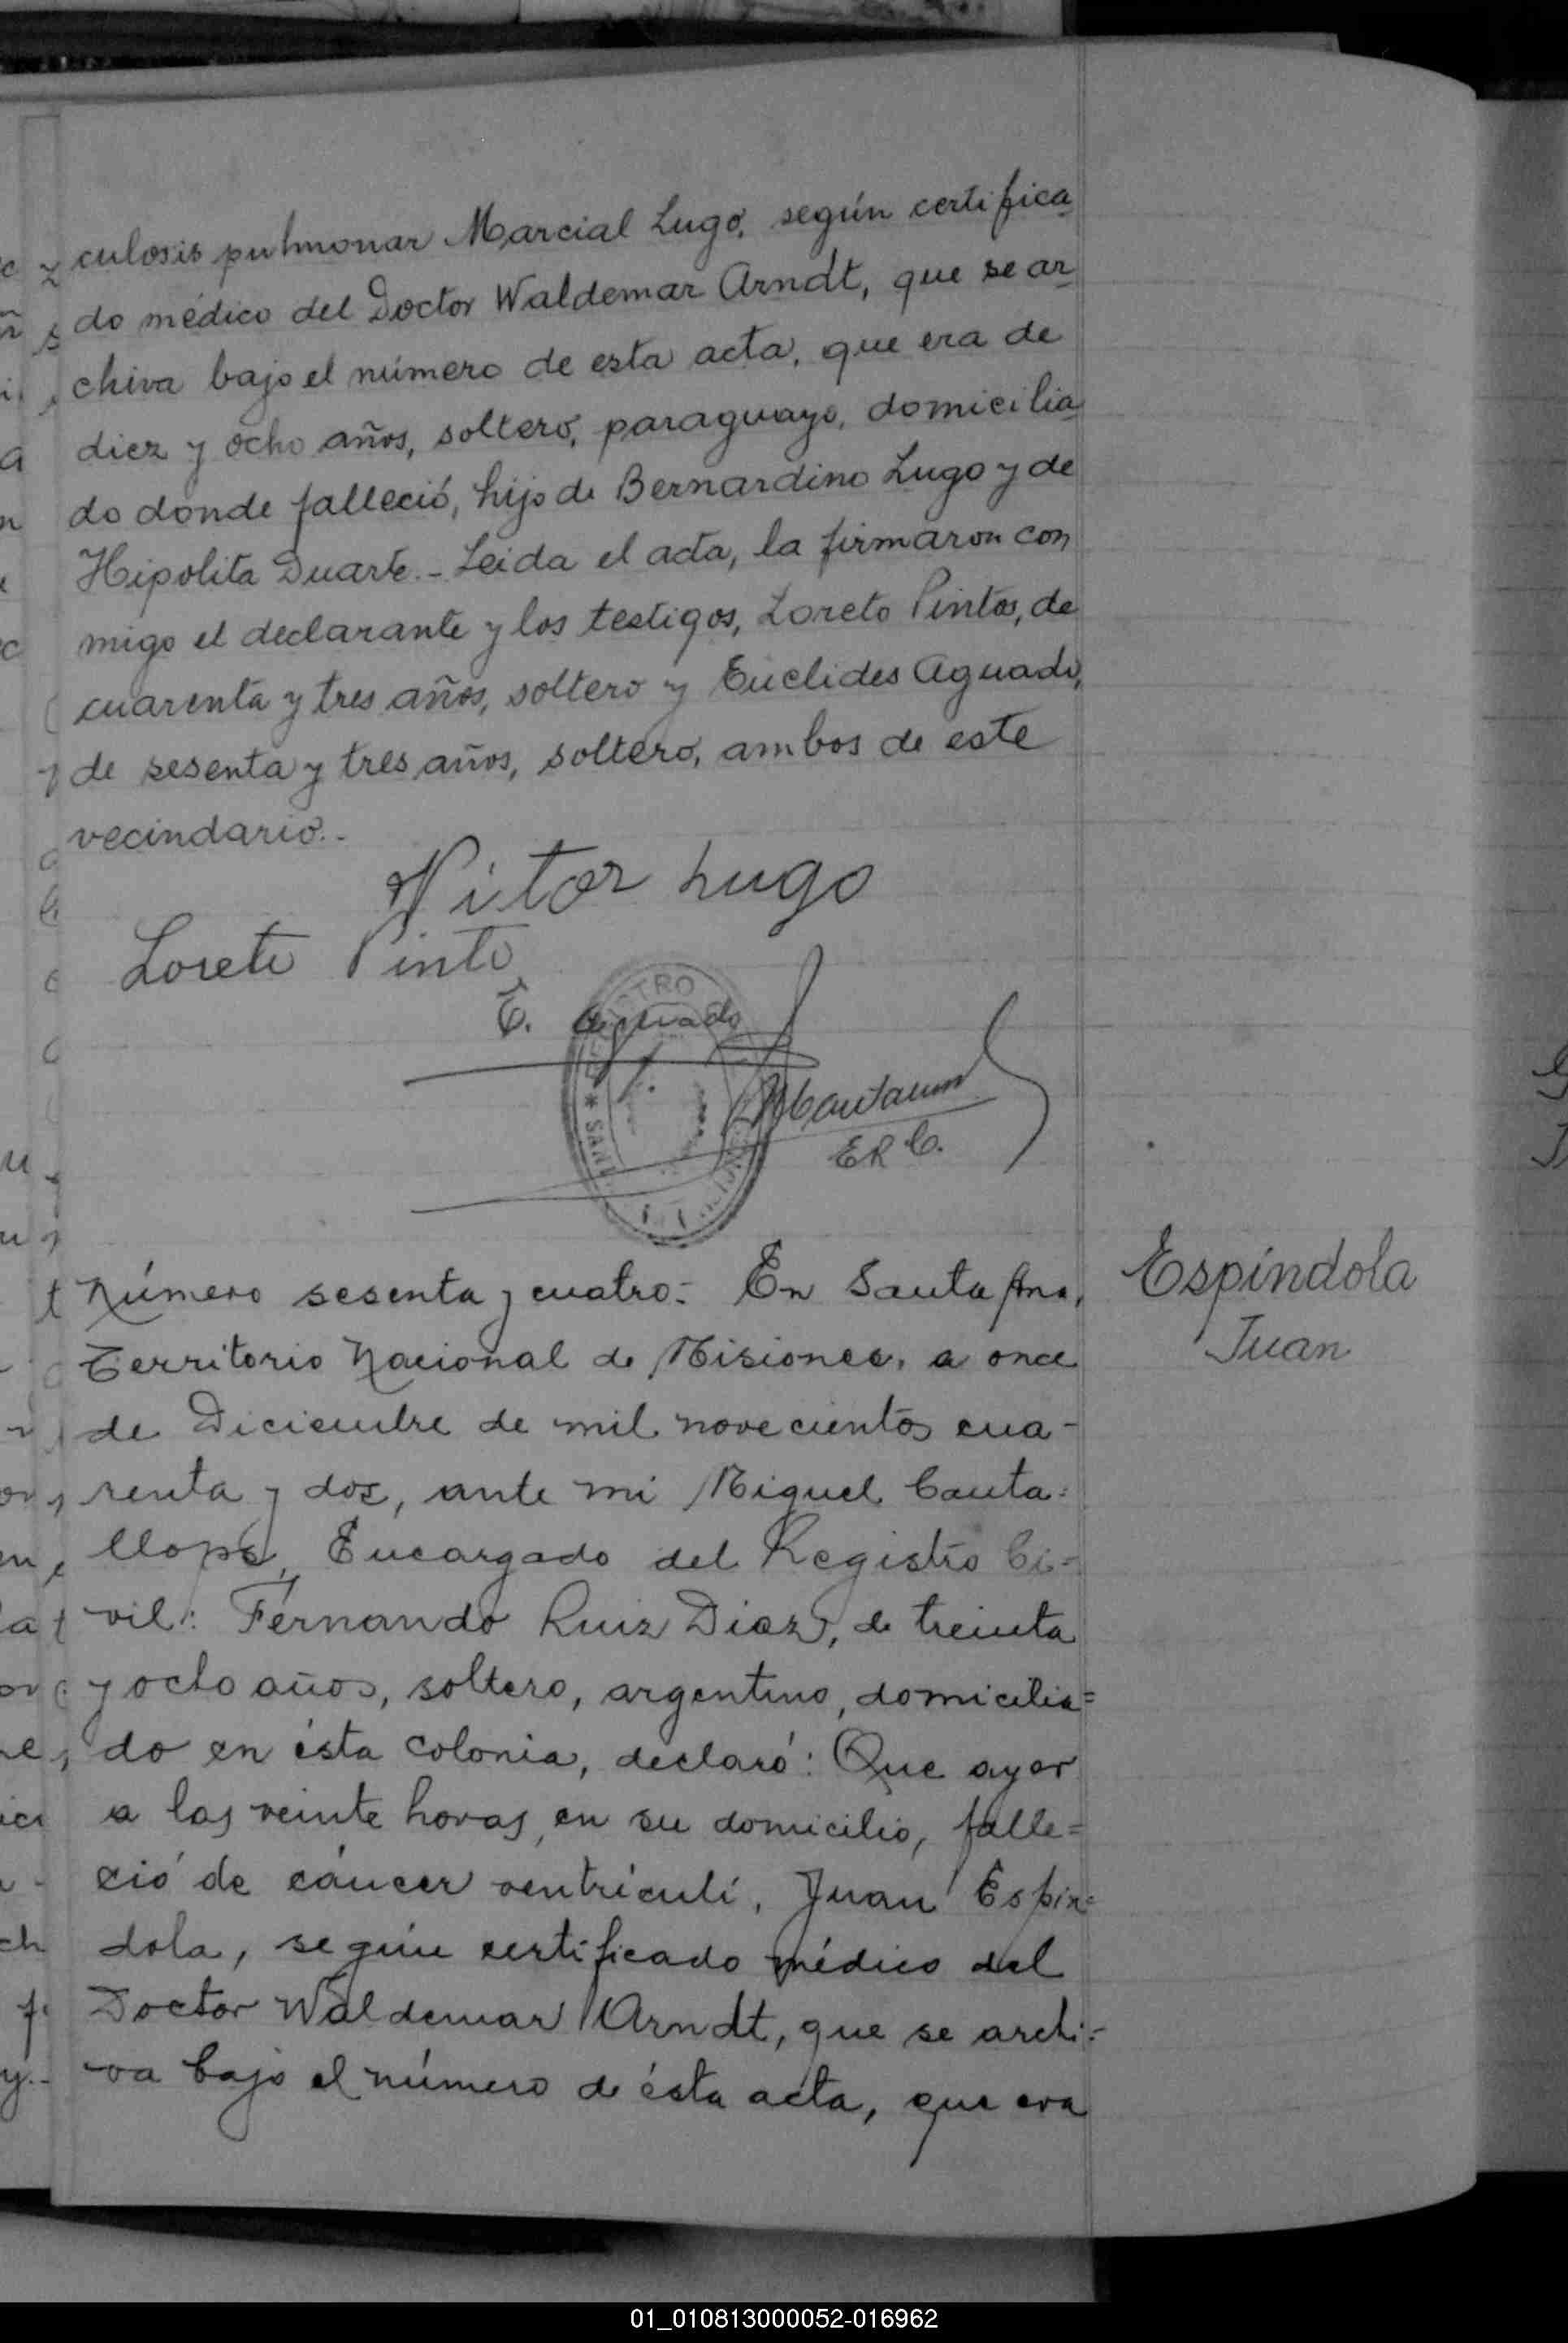 culosis pulmonar Marcial Lugo, según certifica
do médico del Doctor Waldemar Arndt, que se ar
chiva bajo el número de esta acta, que era de
diez y ocho años, soltero, paraguayo, domicilia
do donde falleció, hijo de Bernardino Lugo y de
Hipolita Duarte.- Leida el acta, la firmaron con
migo el declarante y los testigos, Loreto Pintos, de
cuarenta y tres años, soltero y Euclides Aguado,
de sesenta y tres años, soltero, ambos de este
vecindario.-
Vitor Lugo
Loreto Pinto
E. Aguado
E R C.
Número sesenta y cuatro.- En Santa Ana,
Territorio Nacional de Misiones, a once
de Diciembre de mil novecientos cua-
renta y dos, ante mi Miguel Canta=
llops, Encargado del Registro Ci=
vil: Fernando Ruiz Diaz, de treinta
y ocho años, soltero, argentino, domicilia=
do en ésta colonia, declaró: Que ayer
a las veinte horas, en su domicilio, falle=
ció de cáncer ventrículi, Juan Espín=
dola, según certificado médico del
Doctor Waldemar Arndt, que se archi=
va bajo el número de ésta acta, que era
Espíndola
Juan
01_010813000052-016962